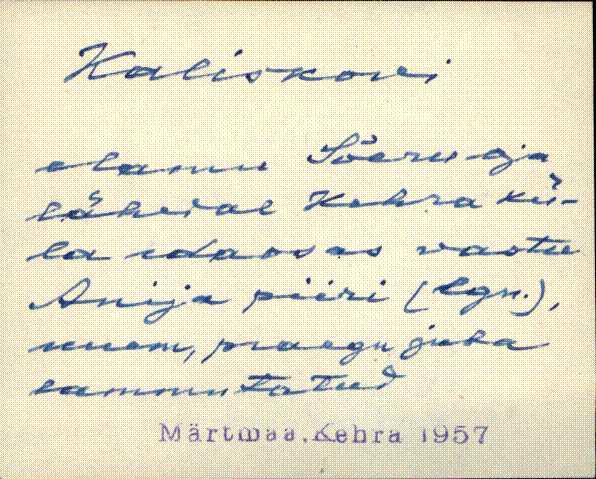 Kaliskovi
elamu Sõeru oja
lähedal Kehra kü-
la idaosas vastu
Anija piiri (lgn.),
uuem, praegu juba
lammutatud
Märtmaa, Kehra 1957